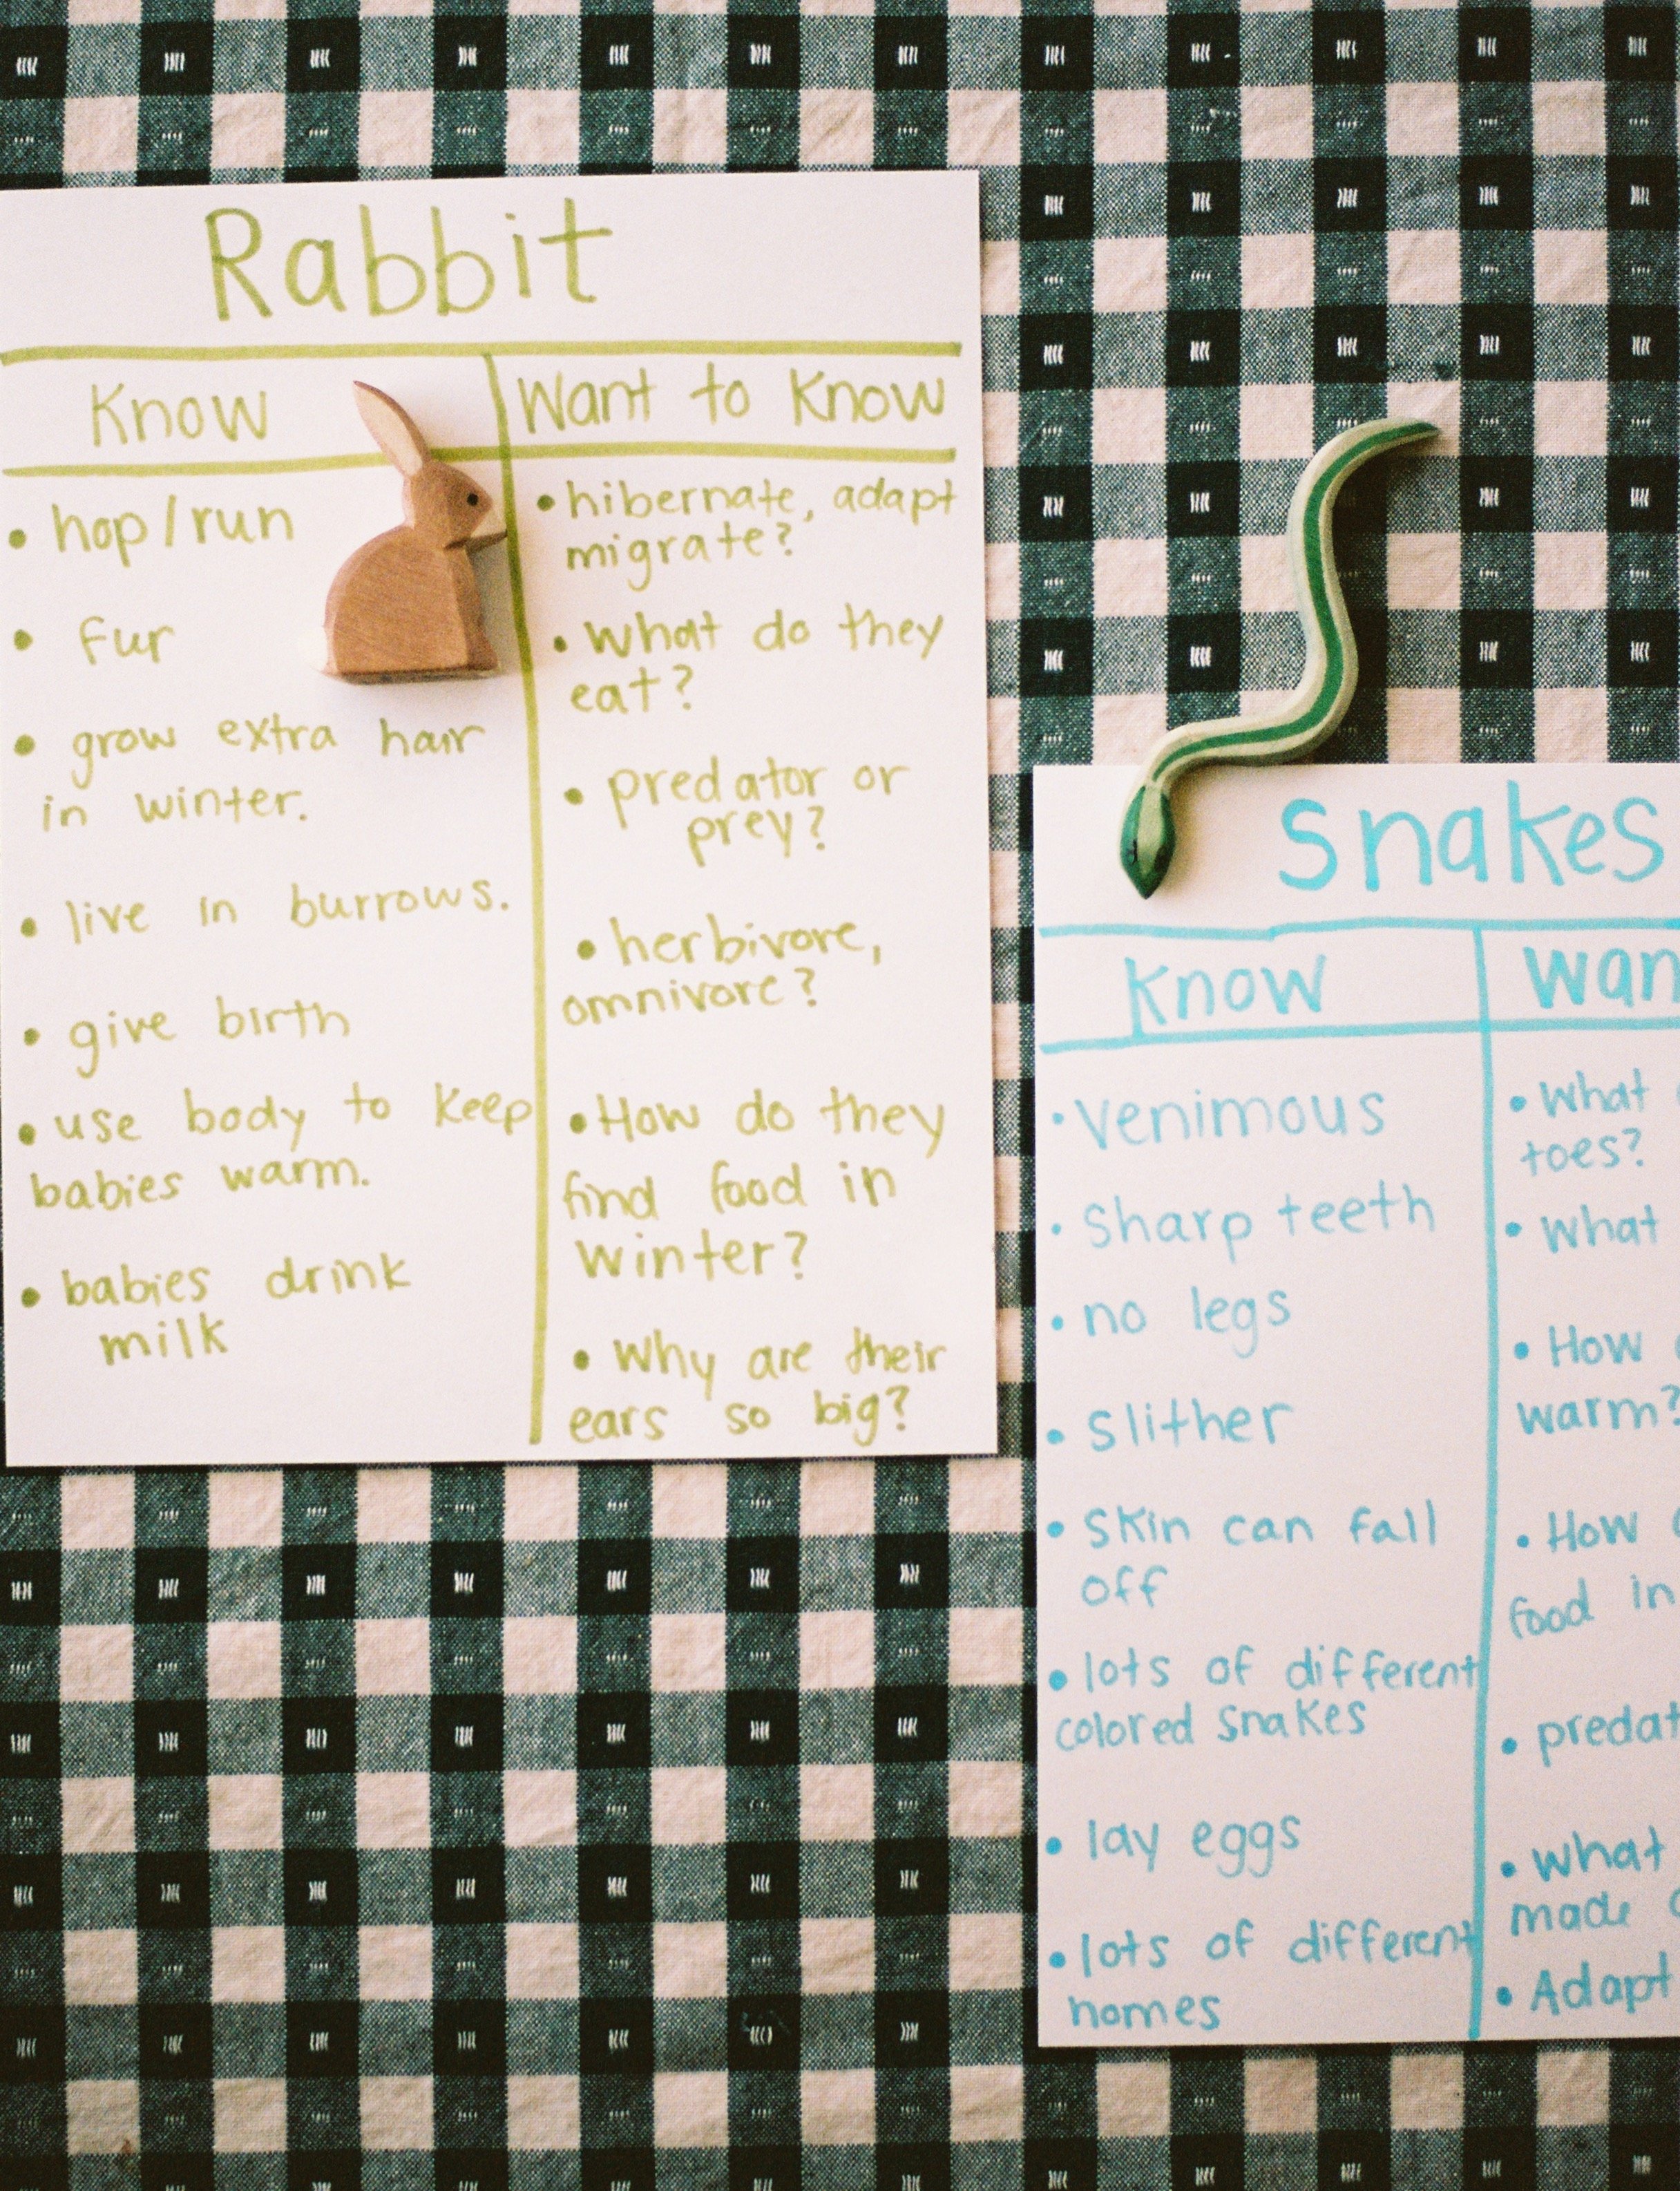 Rabbit
Know
Want to Know
• hop/run
• fur
• grow extra hair
in winter.
• live in burrows.
• give birth
• use body to keep
babies warm.
• babies drink
milk
• hibernate, adapt
migrate?
• what do they
eat?
• predator or
prey?
• herbivore,
omnivore?
• How do they
find food in
winter?
• Why are their
ears so big?
Snakes
Know
Wan
• venimous
• sharp teeth
• no legs
• slither
• skin can fall
off
• lots of different
colored snakes
• lay eggs
• lots of different
homes
• What
toes?
• what
• How
warm?
• How
food in
• predat
• what
made
• Adapt